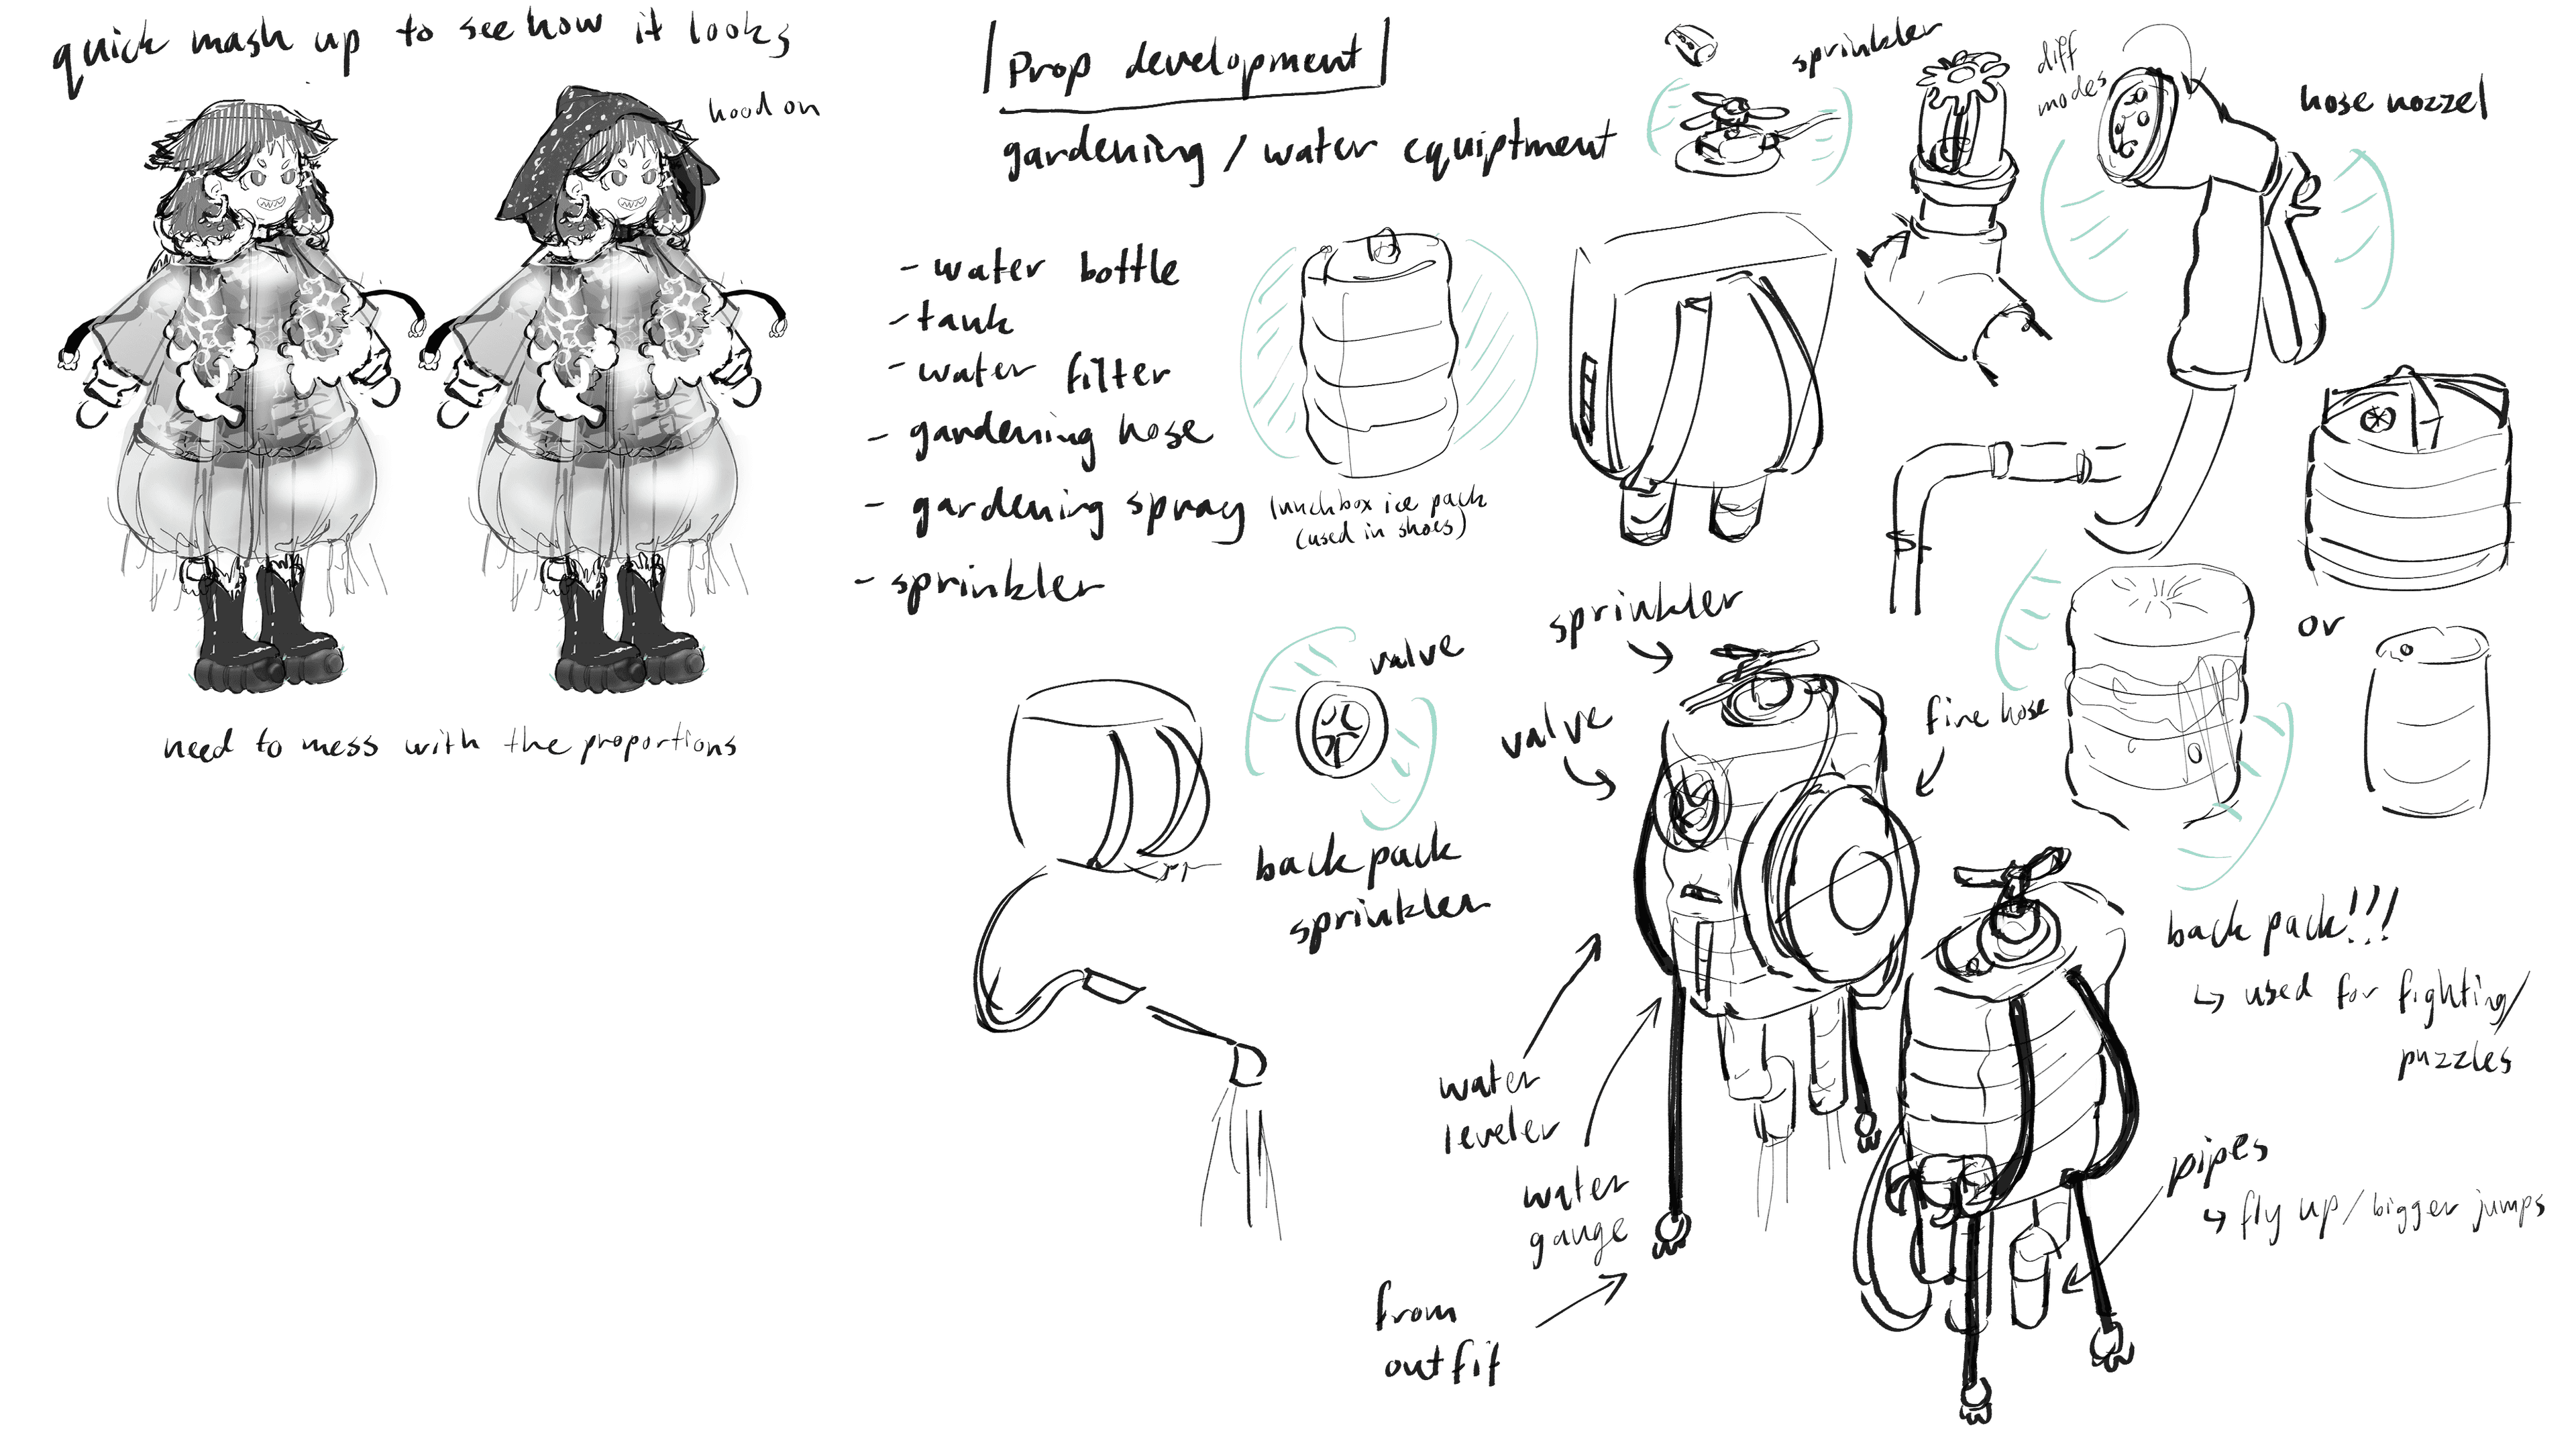 quick mash up to see how it looks
hood on
need to mess with the proportions
Prop development
gardening / water equiptment
- water bottle
- tank
- water filter
- gardening hose
- gardening spray
- sprinkler
lunchbox ice pack
(used in shoes)
sprinkler
diff
modes
hose nozzel
or
valve
back pack
sprinkler
sprinkler
valve
fire hose
water
leveler
water
gauge
from
outfit
back pack!!!
↳ used for fighting/
puzzles
pipes
↳ fly up / bigger jumps